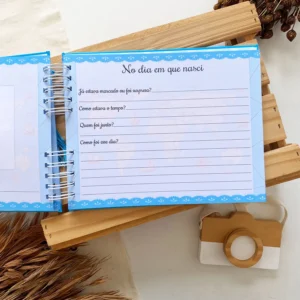 No dia em que nasci
Já estava marcado ou foi surpresa?
Como estava o tempo?
Quem foi junto?
Como foi esse dia?